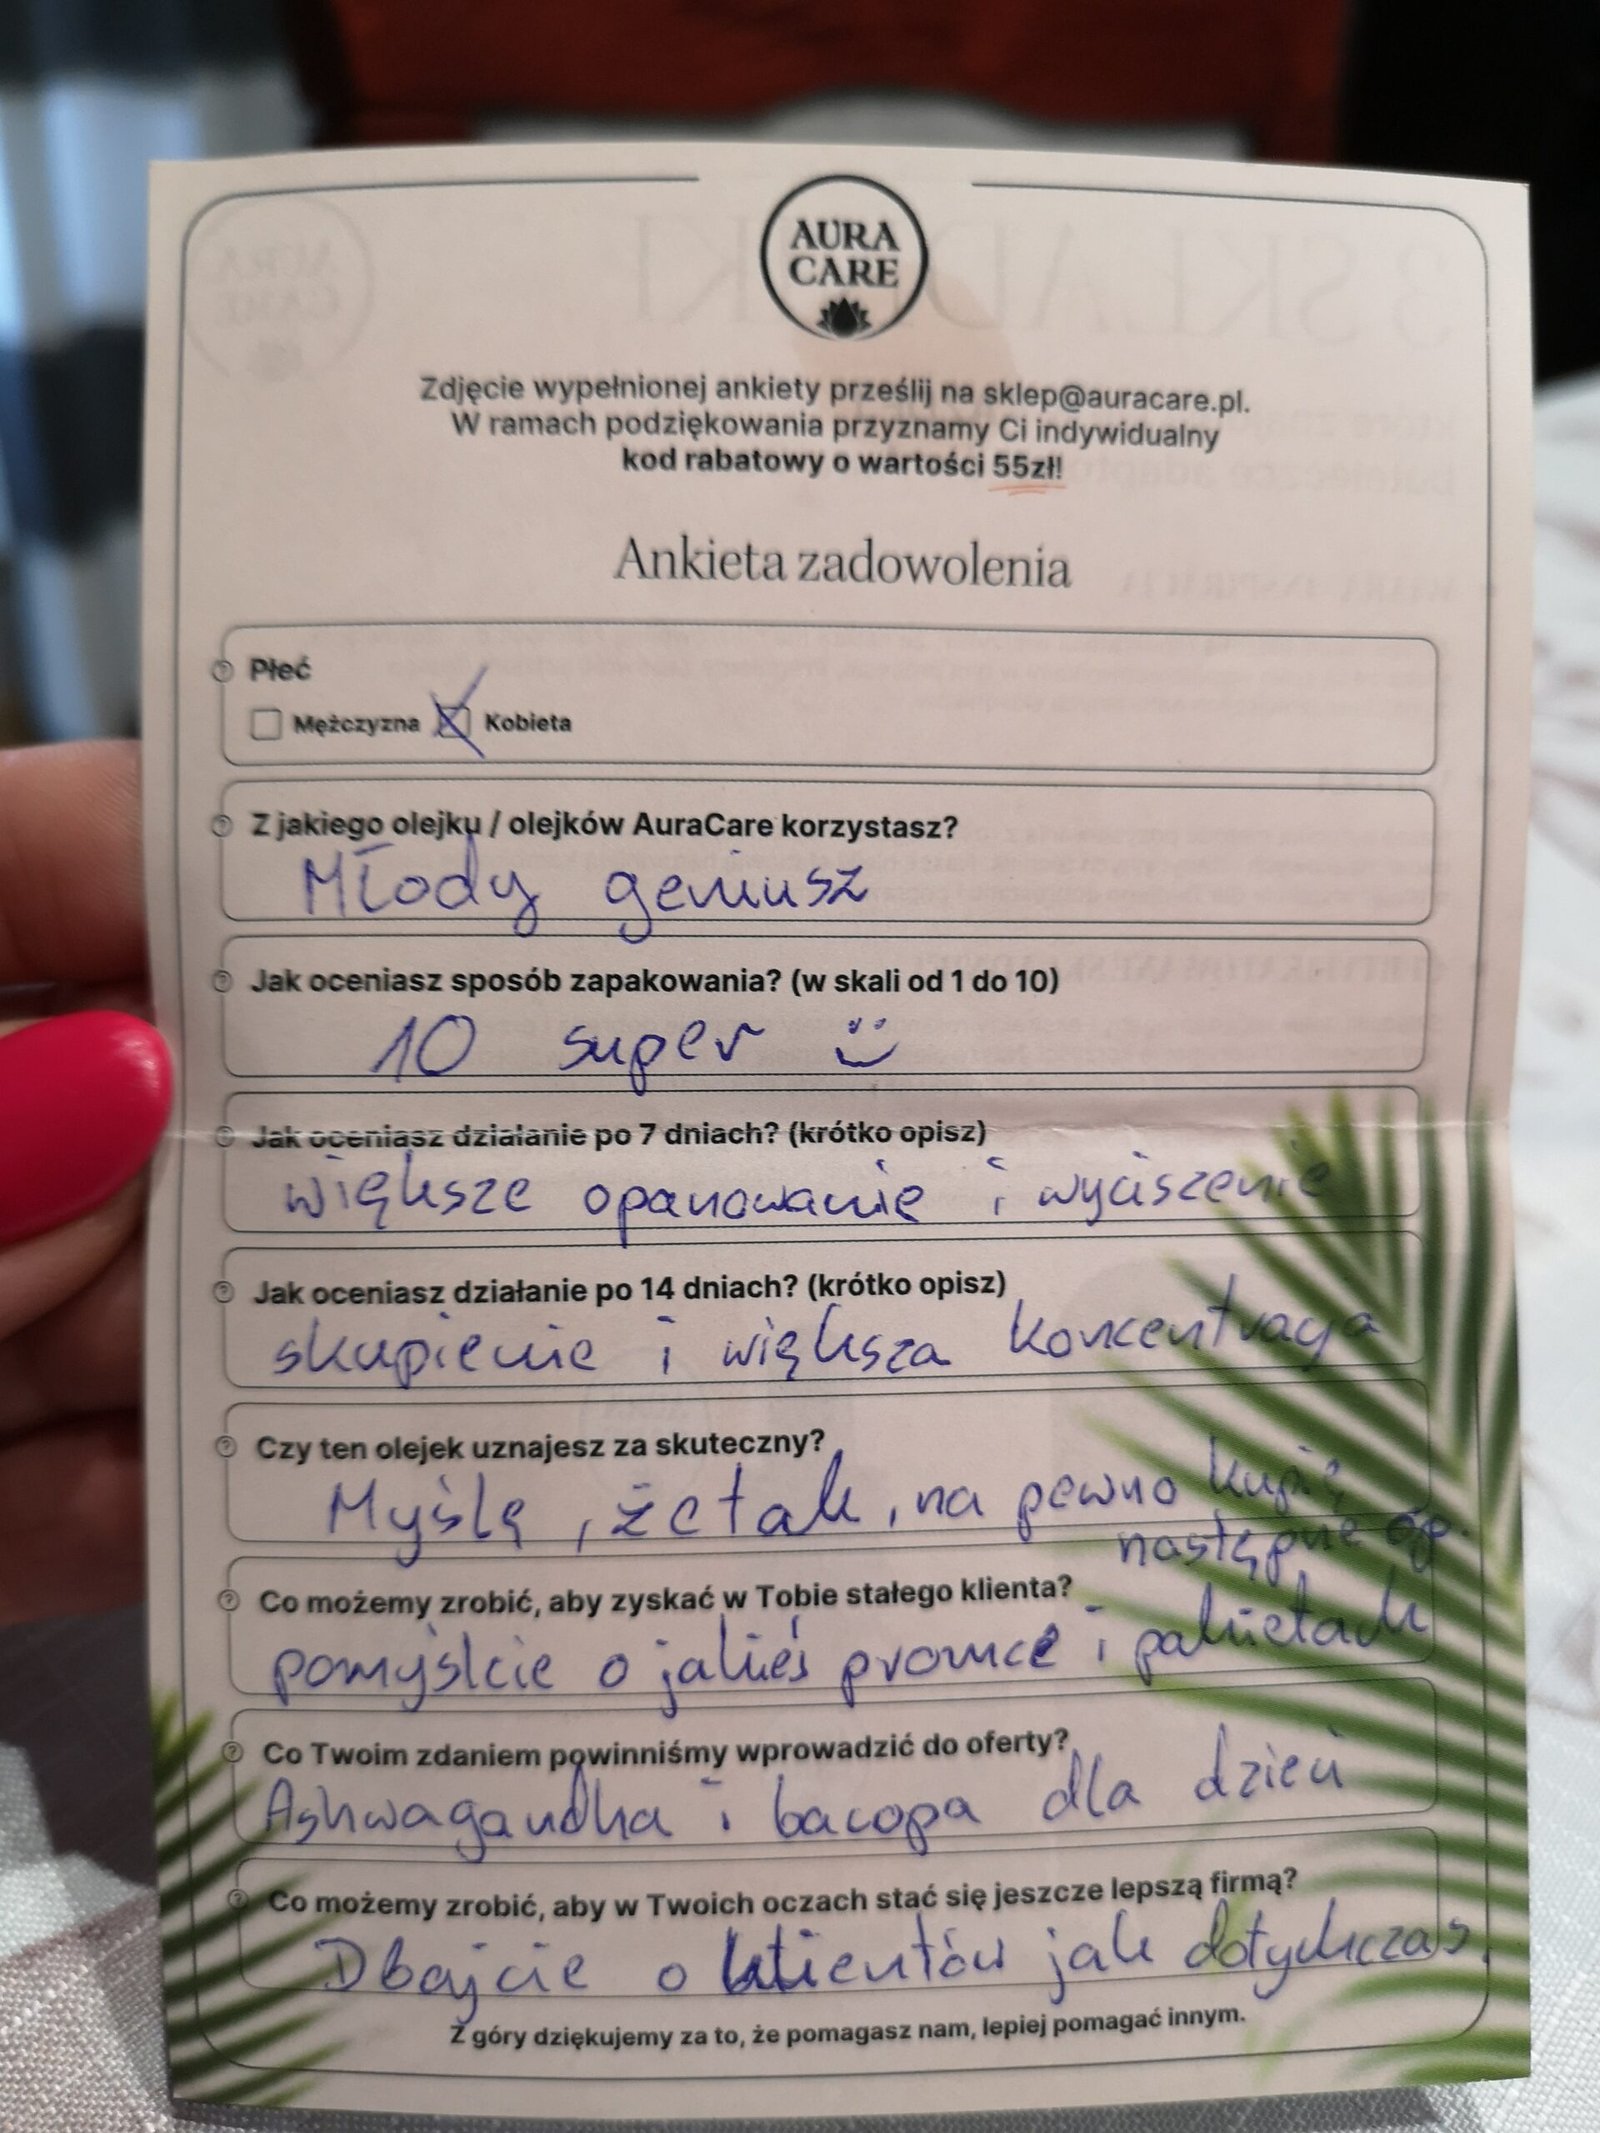 AURA
CARE
Zdjęcie wypełnionej ankiety prześlij na sklep@auracare.pl.
W ramach podziękowania przyznamy Ci indywidualny
kod rabatowy o wartości 55zł!
Ankieta zadowolenia
Płeć
Mężczyzna Kobieta
Z jakiego olejku / olejków AuraCare korzystasz?
Młody geniusz
Jak oceniasz sposób zapakowania? (w skali od 1 do 10)
10 super
Jak oceniasz działanie po 7 dniach? (krótko opisz)
większe opanowanie i wyciszenie
Jak oceniasz działanie po 14 dniach? (krótko opisz)
skupienie i większa koncentracja
Czy ten olejek uznajesz za skuteczny?
Myślę, że tak, na pewno kupię
następne op.
Co możemy zrobić, aby zyskać w Tobie stałego klienta?
pomyślcie o jakieś promce i pakietach
Co Twoim zdaniem powinniśmy wprowadzić do oferty?
Ashwagandha i bacopa dla dzieci
Co możemy zrobić, aby w Twoich oczach stać się jeszcze lepszą firmą?
Dbajcie o klientów jak dotychczas.
Z góry dziękujemy za to, że pomagasz nam, lepiej pomagać innym.